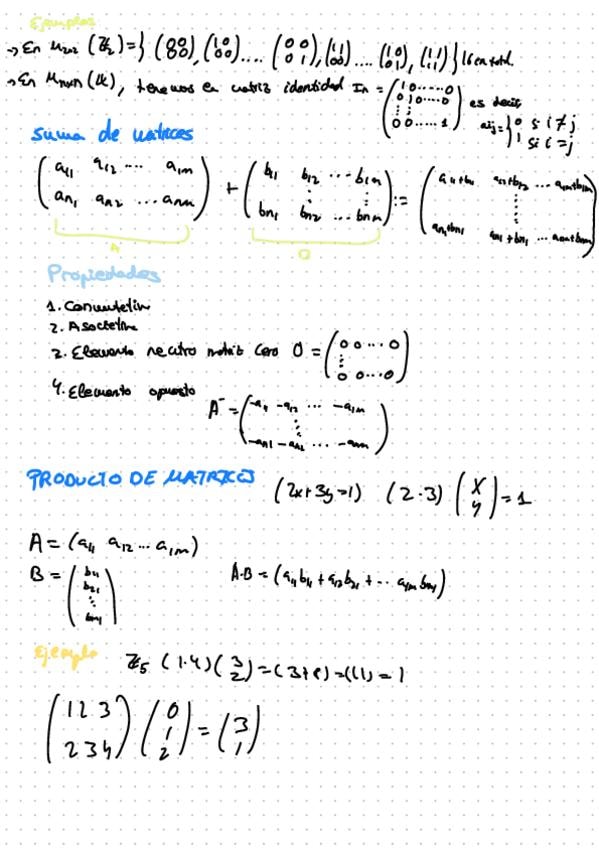 Ejemplos
→ En M₂ₓ₂ (ℤ₂) = { (0 0 / 0 0), (1 0 / 0 0) .... (0 0 / 0 1), (1 1 / 0 0) .... (1 0 / 0 1), (1 1 / 1 1) } 16 en total.
→ En Mₙₓₙ (K), tenemos la matriz identidad In = (1 0 ..... 0 / 0 1 0 .... 0 / ⋮ / 0 0 ..... 1) es decir aij = { 0 si i ≠ j / 1 si i = j
Suma de matrices
(a₁₁ a₁₂ ... a₁m / an₁ an₂ ... anm) + (b₁₁ b₁₂ ... b₁m / ⋮ / bn₁ bn₂ ... bnm) := (a₁₁+b₁₁ a₁₂+b₁₂ ... a₁m+b₁m / ⋮ / an₁+bn₁ an₁+bn₁ ... anm+bnm)
A B
Propiedades
1. Conmutativa
2. Asociativa
3. Elemento neutro matriz cero 0 = (0 0 ... 0 / ⋮ / 0 0 ... 0)
4. Elemento opuesto
A⁻ = (-a₁₁ -a₁₂ ... -a₁m / ⋮ / -an1 -an2 ... -anm)
PRODUCTO DE MATRICES (2x+3y=1) (2·3) (x / y) = 1
A = (a₁₁ a₁₂ ... a₁m)
B = (b₁₁ / b₂₁ / ⋮ / bm₁) A·B = (a₁₁b₁₁ + a₁₂b₂₁ + ... a₁m bm₁)
Ejemplo ℤ₅ (1·4) (3 / 2) = (3+8) = (11) = 1
(1 2 3 / 2 3 4) (0 / 1 / 2) = (3 / 1)